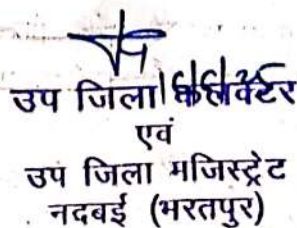 उप जिला कलेक्टर
एवं
उप जिला मजिस्ट्रेट
नदबई (भरतपुर)